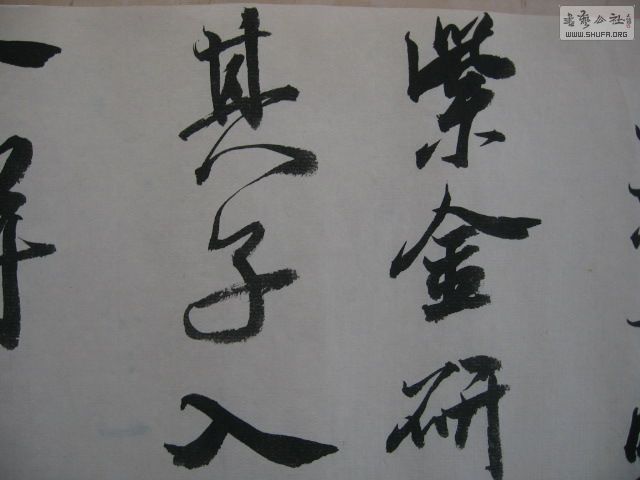 紫金研
其子入
一
書藝公社
WWW.SHUFA.ORG